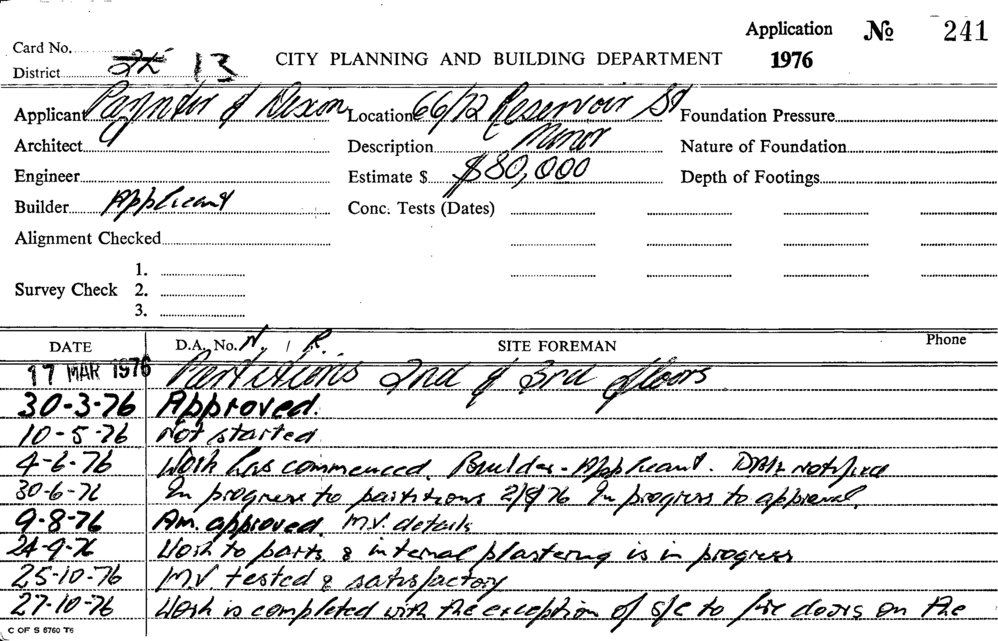 Application № 241
Card No.
District 24 13 CITY PLANNING AND BUILDING DEPARTMENT 1976
Applicant Paynter & Dixon Location 66/72 Reservoir St Foundation Pressure
Architect Description Minor Nature of Foundation
Engineer Estimate $ $80,000 Depth of Footings
Builder Applicant Conc. Tests (Dates)
Alignment Checked
1.
Survey Check 2.
3.
DATE D.A. No. N. R. SITE FOREMAN Phone
17 MAR 1976 Partitions 2nd & 3rd floors
30-3-76 Approved.
10-5-76 Not started
4-6-76 Work has commenced. Builder - Applicant. notified
30-6-76 In progress to partitions 2/8/76 In progress to approval.
9-8-76 Am. approved. M.V. details
24-9-76 Work to parts. & internal plastering is in progress
25-10-76 MV tested & satisfactory
27-10-76 Work is completed with the exception of s/c to fire doors on the
C OF S 6760 T6